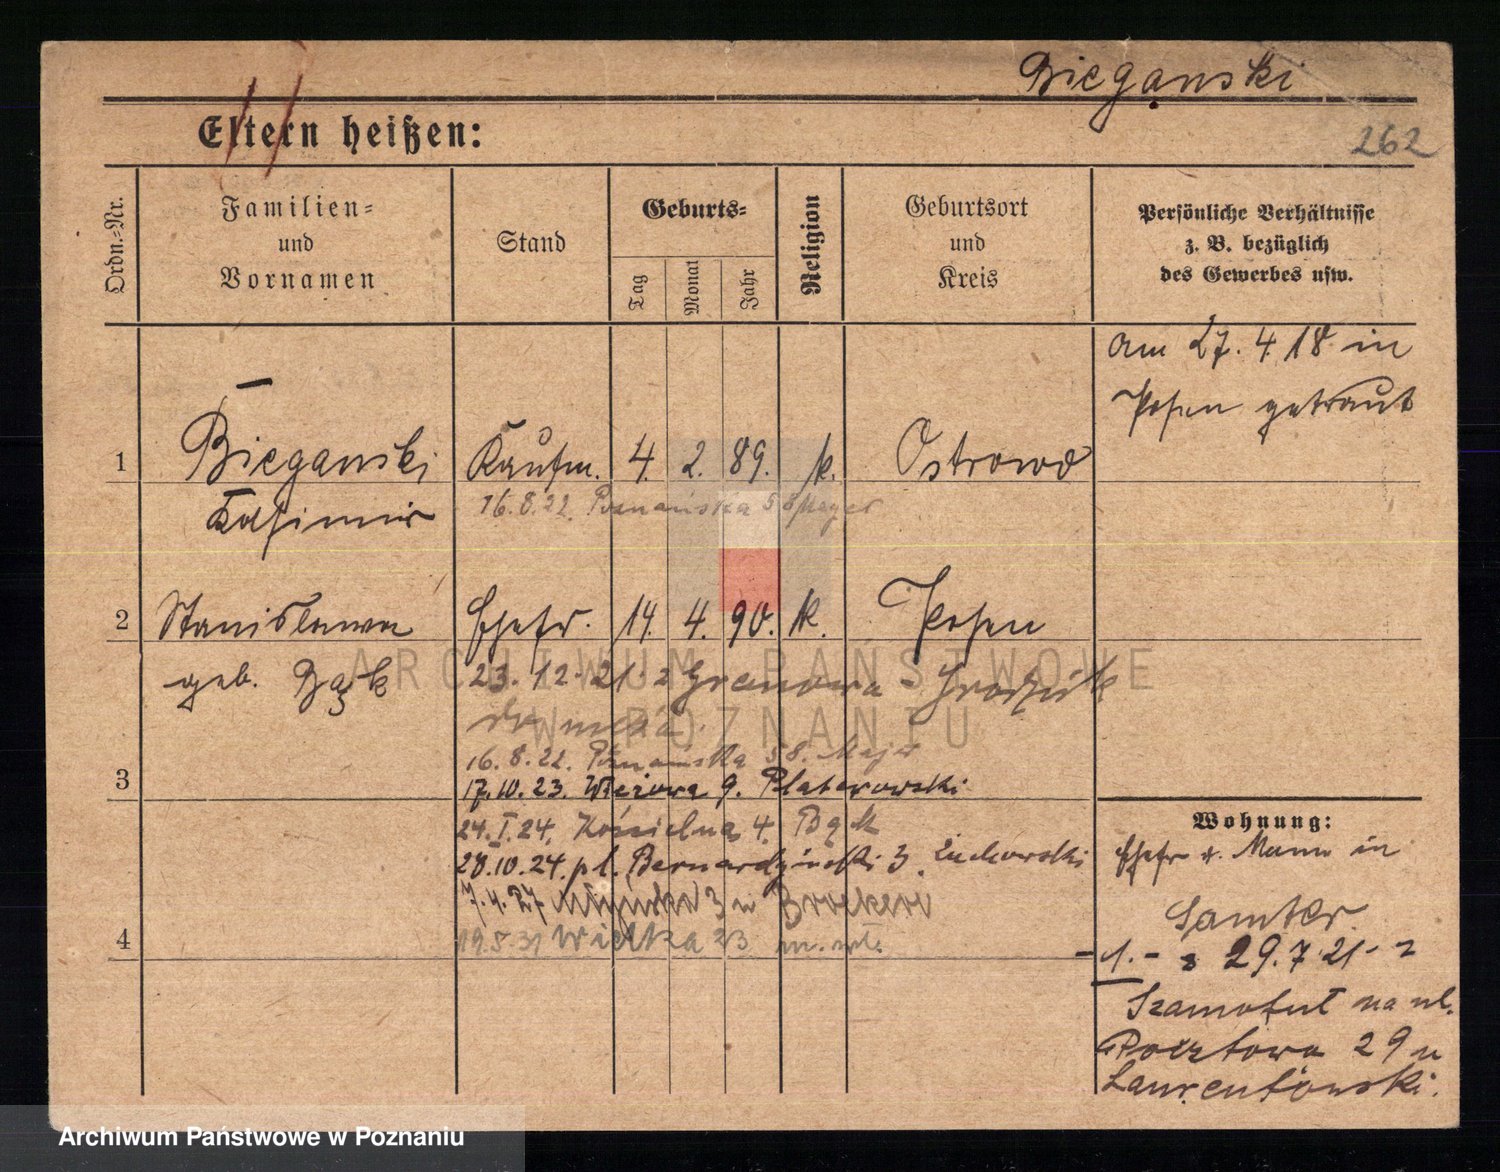 Bieganski
Eltern heißen:
262
Ordn.-Nr.
Familien-
und
Vornamen
Stand
Geburts-
Tag
Monat
Jahr
Religion
Geburtsort
und
Kreis
Persönliche Verhältnisse
z. B. bezüglich
des Gewerbes usw.
am 27. 4. 18 in
Posen getraut
1
Bieganski
Kaufm. 4. 2. 89. k. Ostrowo
Kasimir
16.8.22. Poznańska 58 Meyer
2
Stanislawa
Ehefr. 14. 4. 90. k. Posen
geb. Bąk
23. 12. 21. z Granowa - Grodzisk
16.8.22. Poznańska 58.
3
17.10.23. Wieżowa 9. Platerowski
24.I.24. Kościelna 4. Bąk
28.10.24. pl. Bernardyński 3.
7.4.27 3
4
19.5.31 Wielka 23
Wohnung:
Ehefr. u. Mann in
Samter.
-1.- 29.7.21-
Szamotuł na ul.
Pocztowa 29 u
Laurentowski.
ARCHIWUM PAŃSTWOWE
W POZNANIU
Archiwum Państwowe w Poznaniu